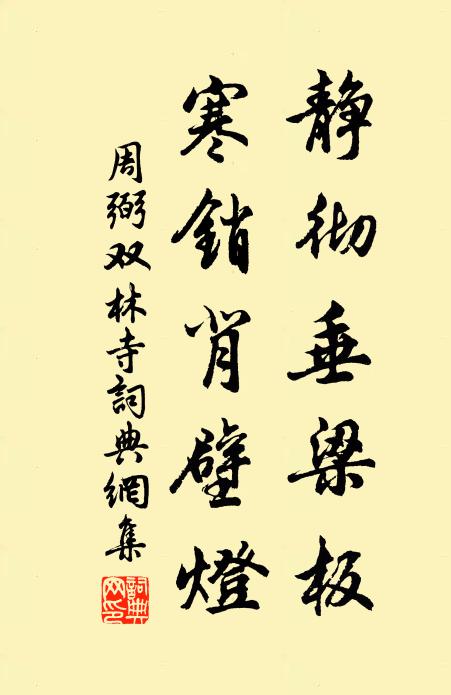 静彻垂梁板
寒銷背壁燈
周弼双林寺詞典網集